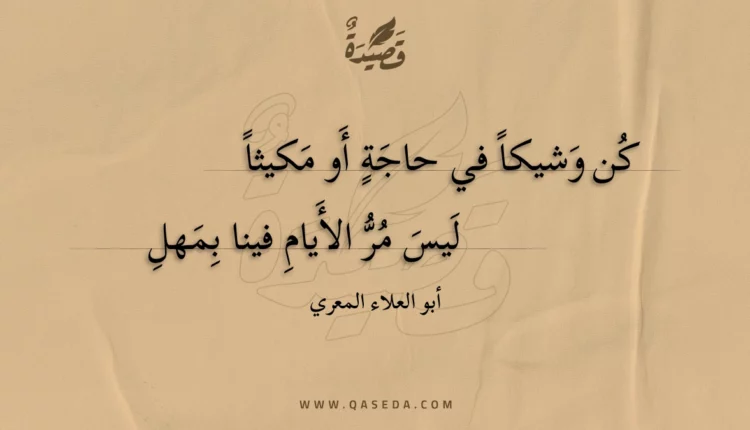 قَصِيدَةٌ
كُن وَشيكاً في حاجَةٍ أَو مَكيثاً
لَيسَ مُرُّ الأَيامِ فينا بِمَهلِ
أبو العلاء المعري
WWW.QASEDA.COM